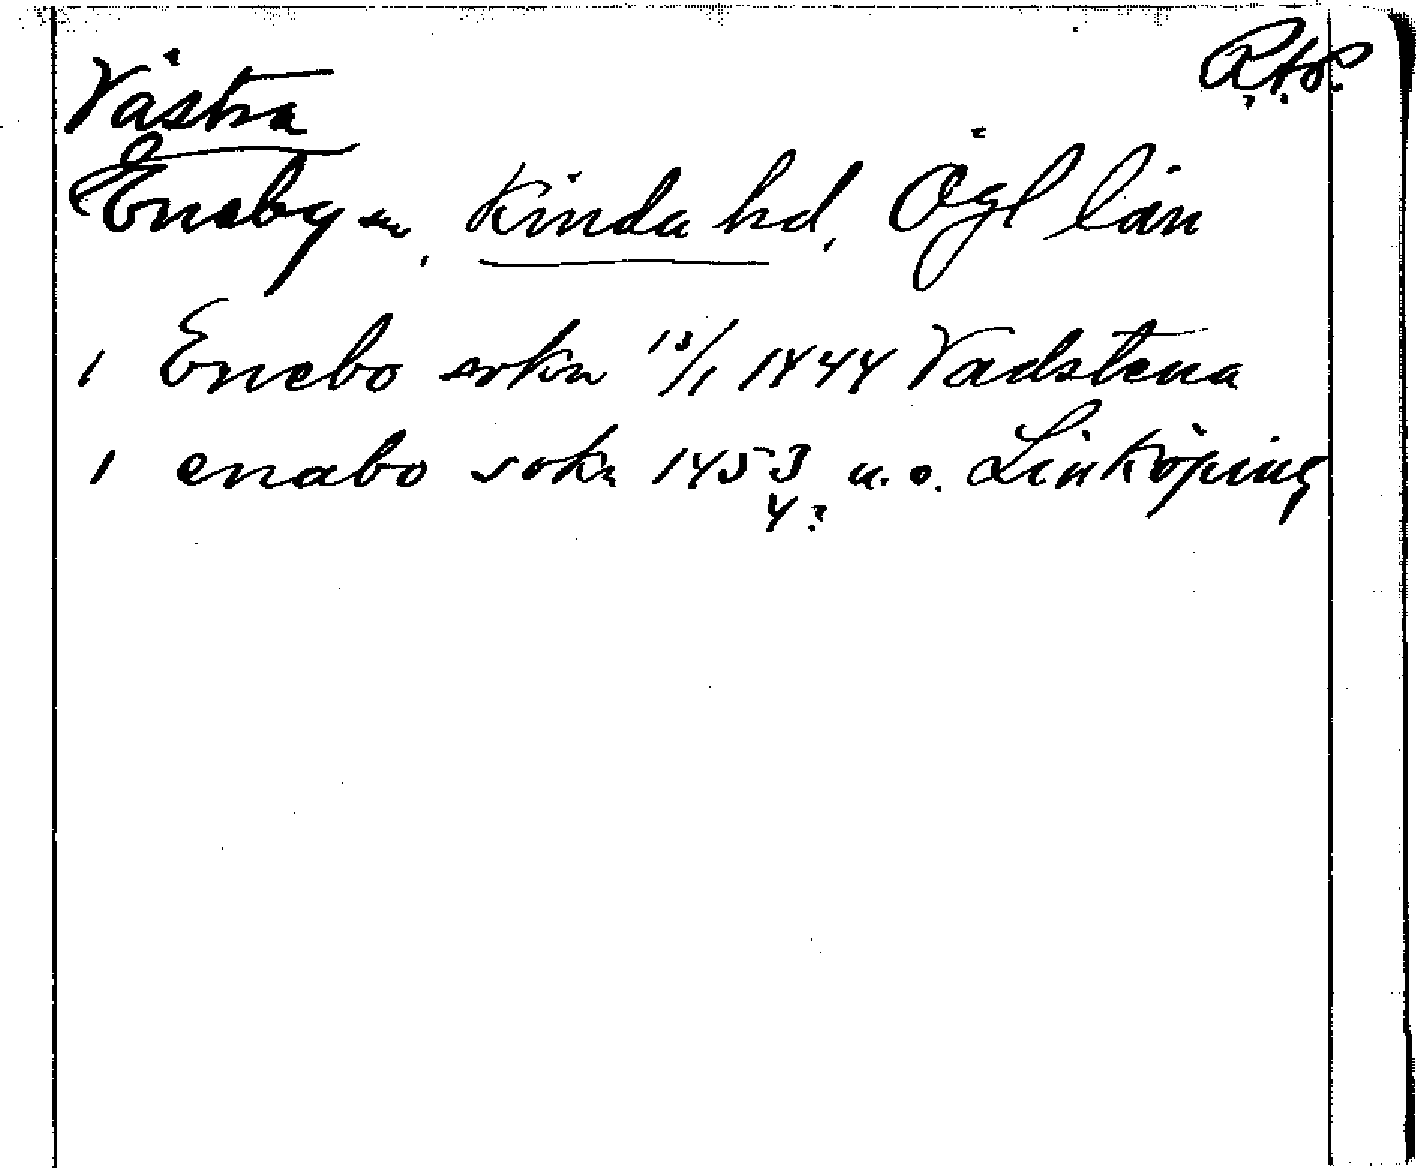 R.A.P.
Västra
Eneby sn, Kinda hd, Ögl län
1 Enebo sokn 13/1 1444 Vadstena
1 enabo sokn 1453 u.o. Linköping
4?